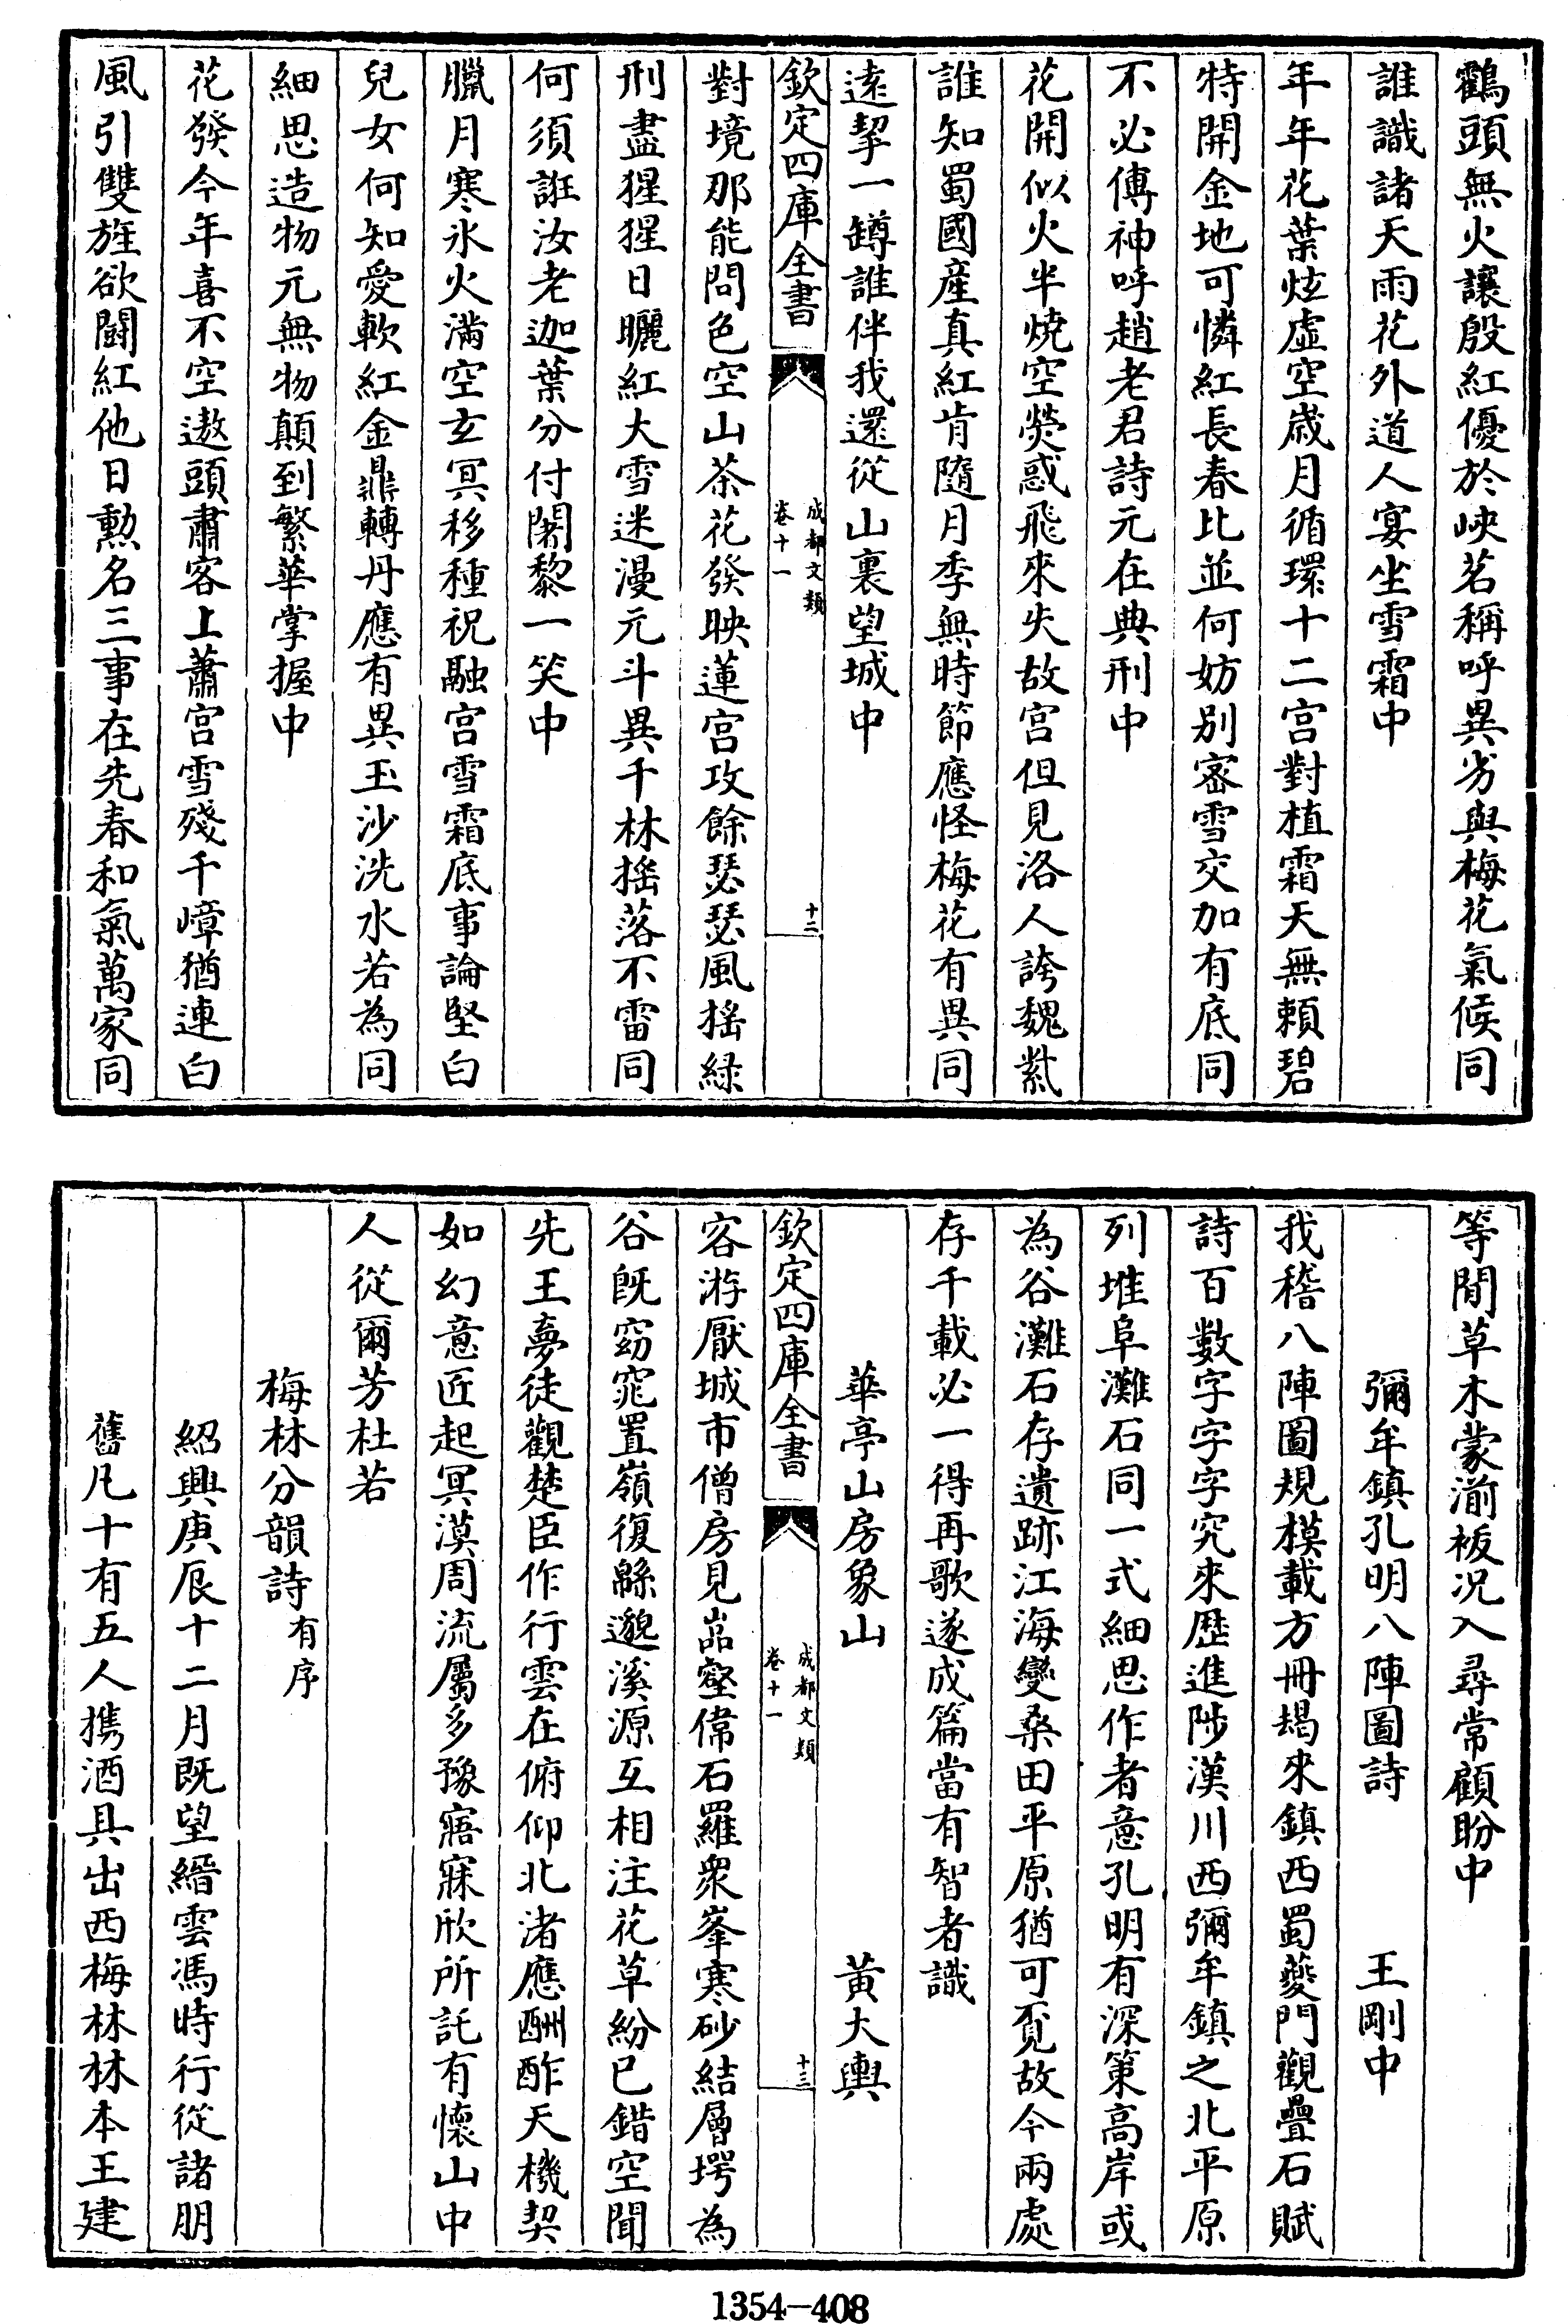 鶴頭無火讓殷紅優於峽茗稱呼異劣與梅花氣候同
誰識諸天雨花外道人宴坐雪霜中
年年花葉炫虛空歲月循環十二宮對植霜天無賴碧
特開金地可憐紅長春比並何妨別密雪交加有底同
不必傳神呼趙老君詩元在典刑中
花開似火半燒空熒惑飛來失故宮但見洛人誇魏紫
誰知蜀國產真紅肯隨月季無時節應怪梅花有異同
遠挈一罇誰伴我還從山裏望城中
欽定四庫全書
成都文類
卷十一
十二
對境那能問色空山茶花發映蓮宮攻餘瑟瑟風搖綠
刑盡猩猩日曬紅大雪迷漫元斗異千林搖落不雷同
何須誑汝老迦葉分付闍黎一笑中
臘月寒氷火滿空玄冥移種祝融宮雪霜底事論堅白
兒女何知愛軟紅金鼎轉丹應有異玉沙洗水若為同
細思造物元無物顛到繁華掌握中
花發今年喜不空遨頭肅客上蕭宮雪殘千嶂猶連白
風引雙旌欲鬭紅他日勲名三事在先春和氣萬家同
等閒草木蒙湔祓况入尋常顧盼中
彌牟鎮孔明八陣圖詩 王剛中
我稽八陣圖規模載方冊朅來鎮西蜀夔門觀疊石賦
詩百數字字字究來歷進陟漢川西彌牟鎮之北平原
列堆阜灘石同一式細思作者意孔明有深策高岸或
為谷灘石存遺跡江海變桑田平原猶可覔故今兩處
存千載必一得再歌遂成篇當有智者識
華亭山房象山 黃大輿
欽定四庫全書
成都文類
卷十一
十三
客游厭城市僧房見嵓壑偉石羅衆峯寒砂結層堮為
谷旣窈窕置嶺復緜邈溪源互相注花草紛已錯空聞
先王夢徒觀楚臣作行雲在俯仰北渚應酬酢天機契
如幻意匠起冥漠周流屬多豫寤寐欣所託有懷山中
人從爾芳杜若
梅林分韻詩有序
紹興庚辰十二月旣望縉雲馮時行從諸朋
舊凡十有五人携酒具出西梅林林本王建
1354—408